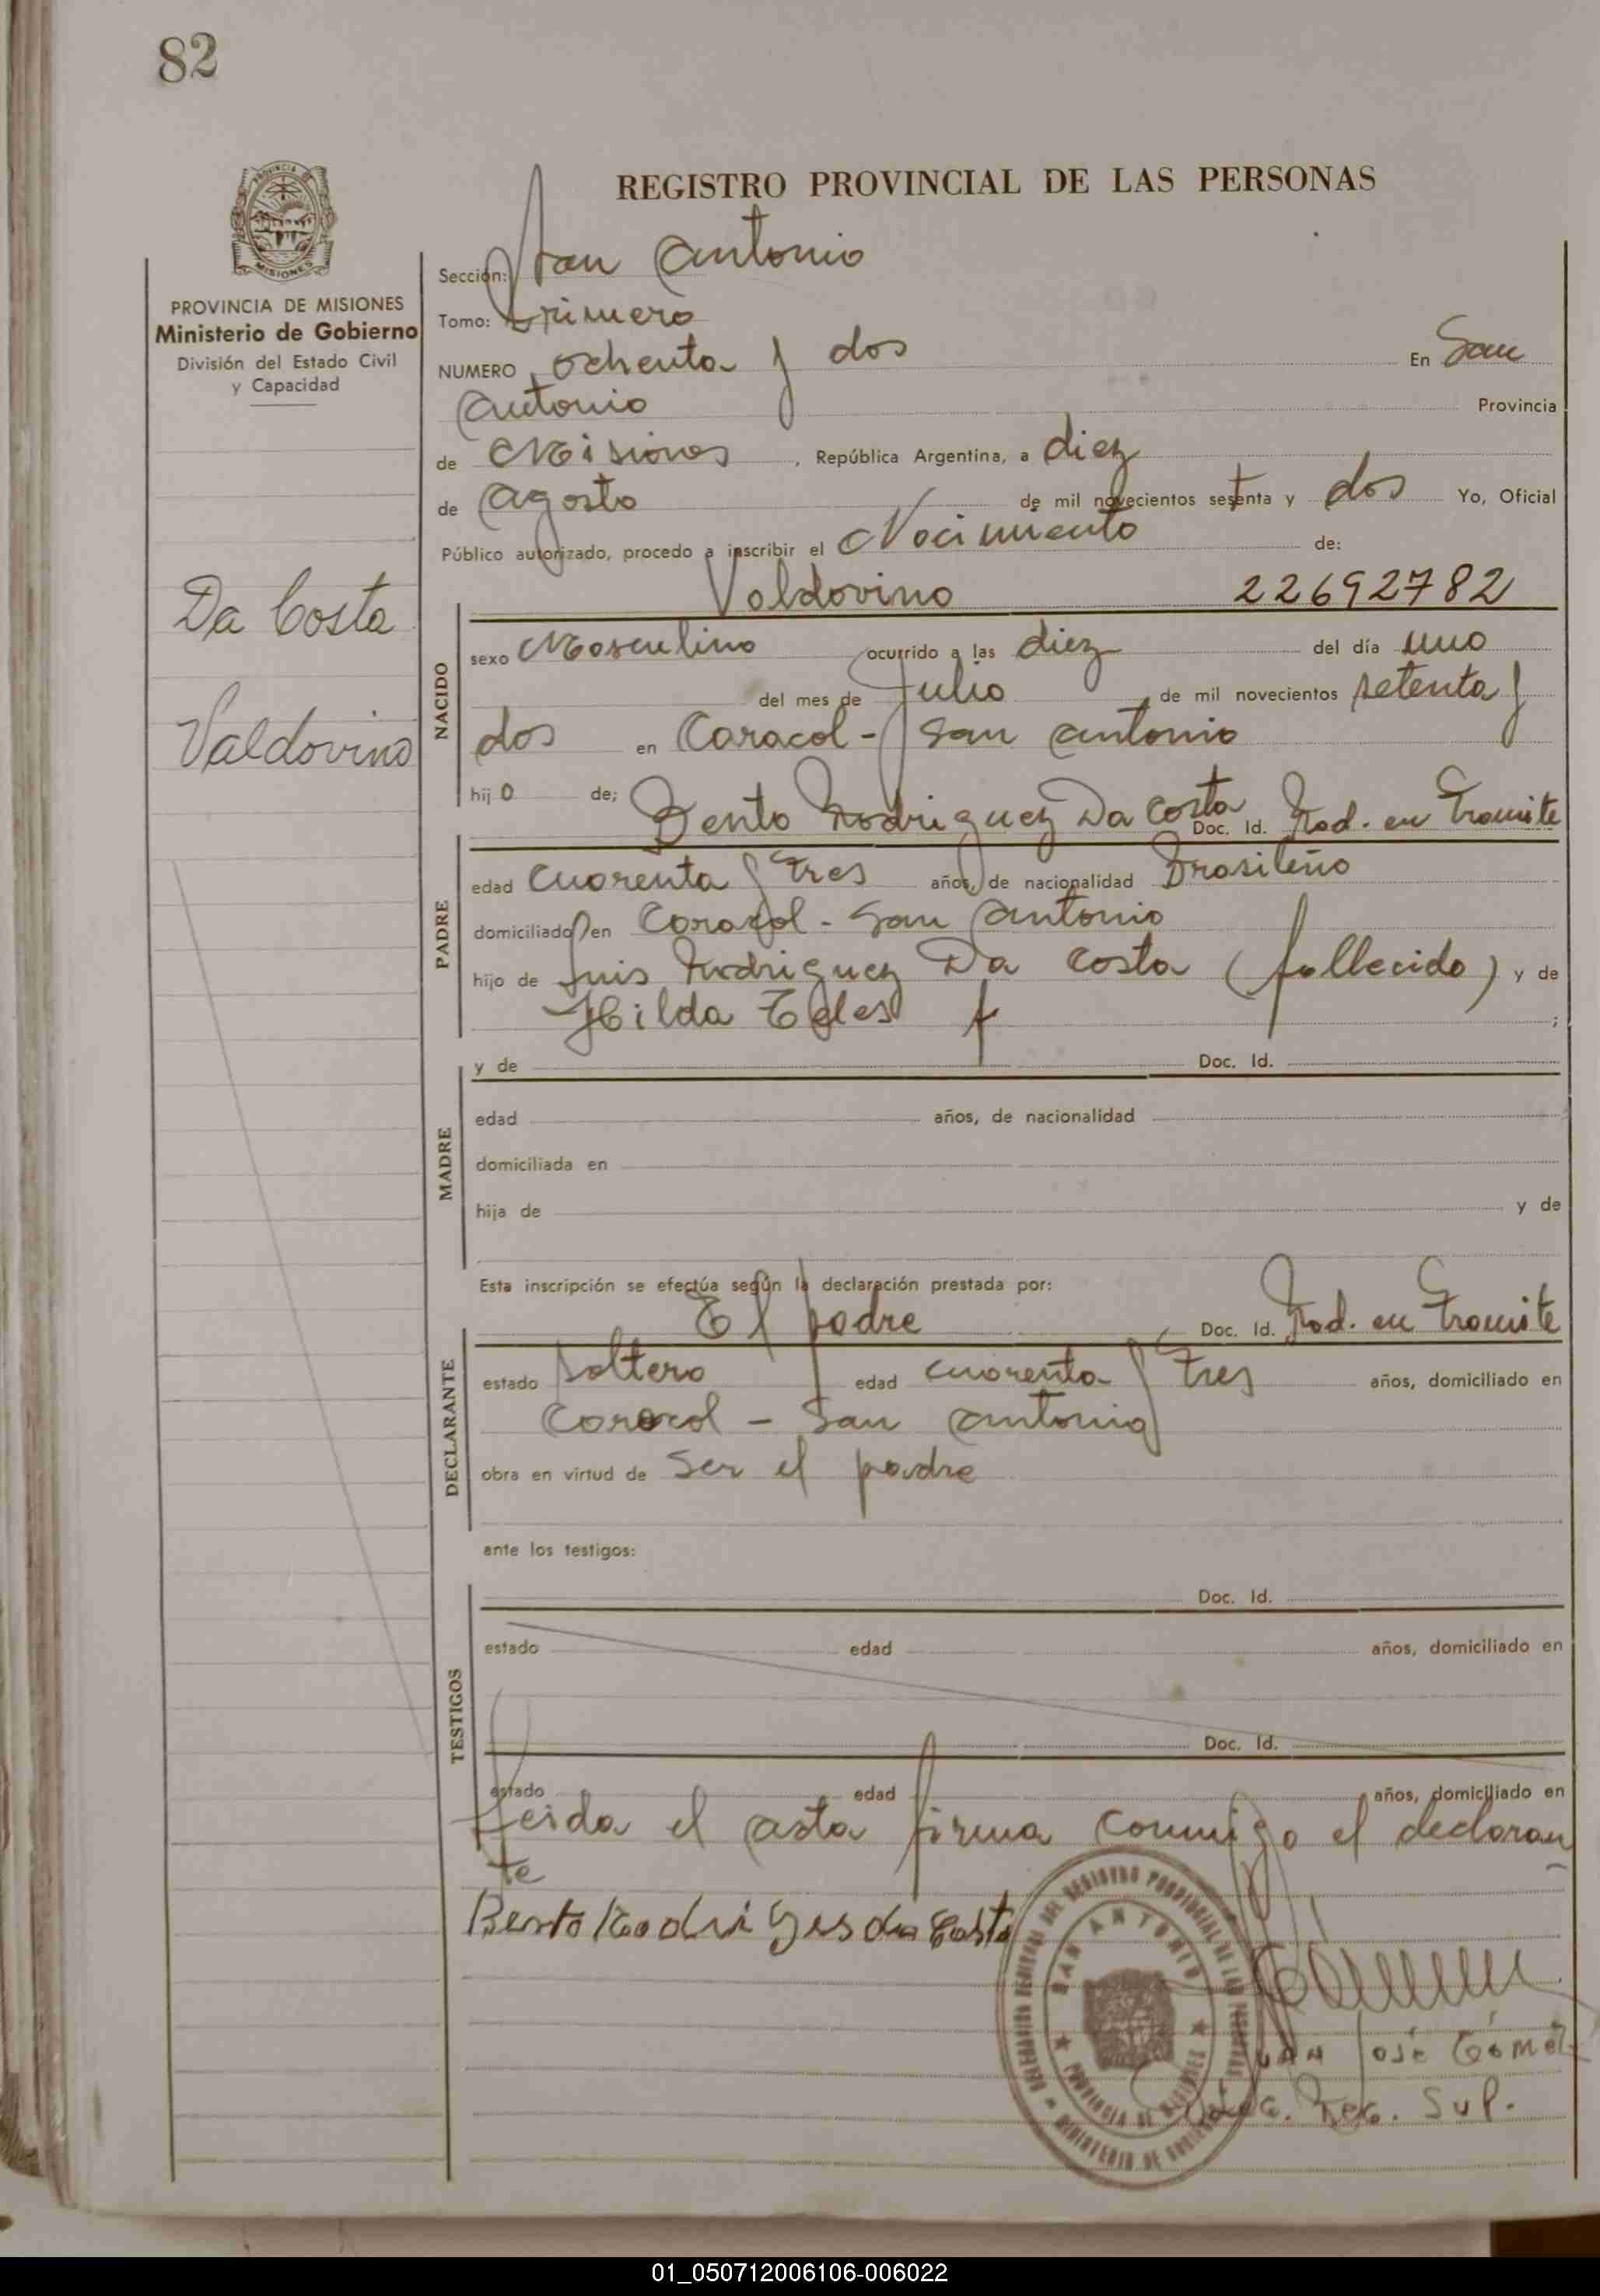 82
REGISTRO PROVINCIAL DE LAS PERSONAS
PROVINCIA DE MISIONES
Ministerio de Gobierno
División del Estado Civil
y Capacidad
Da Costa
Valdovino
Sección: San Antonio
Tomo: Primero
NUMERO ochenta y dos En San
Antonio Provincia
de Misiones, República Argentina, a diez
de Agosto de mil novecientos setenta y dos Yo, Oficial
Público autorizado, procedo a inscribir el Nacimiento de:
Valdovino 22692782
NACIDO
sexo Masculino ocurrido a las diez del día uno
del mes de Julio, de mil novecientos setenta y
dos en Caracol - San Antonio
hijo de; Bento Rodriguez Da Costa Doc. Id. Rad. en Tramite
PADRE
edad cuarenta y tres años, de nacionalidad Brasileño
domiciliado en Caracol - San Antonio
hijo de Luis Rodriguez Da Costa (fallecido) y de
Hilda Teles ;
MADRE
y de Doc. Id.
edad años, de nacionalidad
domiciliada en
hija de y de
Esta inscripción se efectúa según la declaración prestada por:
El padre Doc. Id. Rad. en Tramite
DECLARANTE
estado soltero edad cuarenta y tres años, domiciliado en
Caracol - San Antonio
obra en virtud de ser el padre
ante los testigos:
TESTIGOS
Doc. Id.
estado edad años, domiciliado en
Doc. Id.
estado edad años, domiciliado en
Leida el acta firma conmigo el declaran
te
Bento Rodrigues da Costa
DELEGACION REGIONAL DEL REGISTRO PROVINCIAL DE LAS PERSONAS
SAN ANTONIO
PROVINCIA DE MISIONES
MINISTERIO DE GOBIERNO
Juan José Gómez
Sup.
01_050712006106-006022